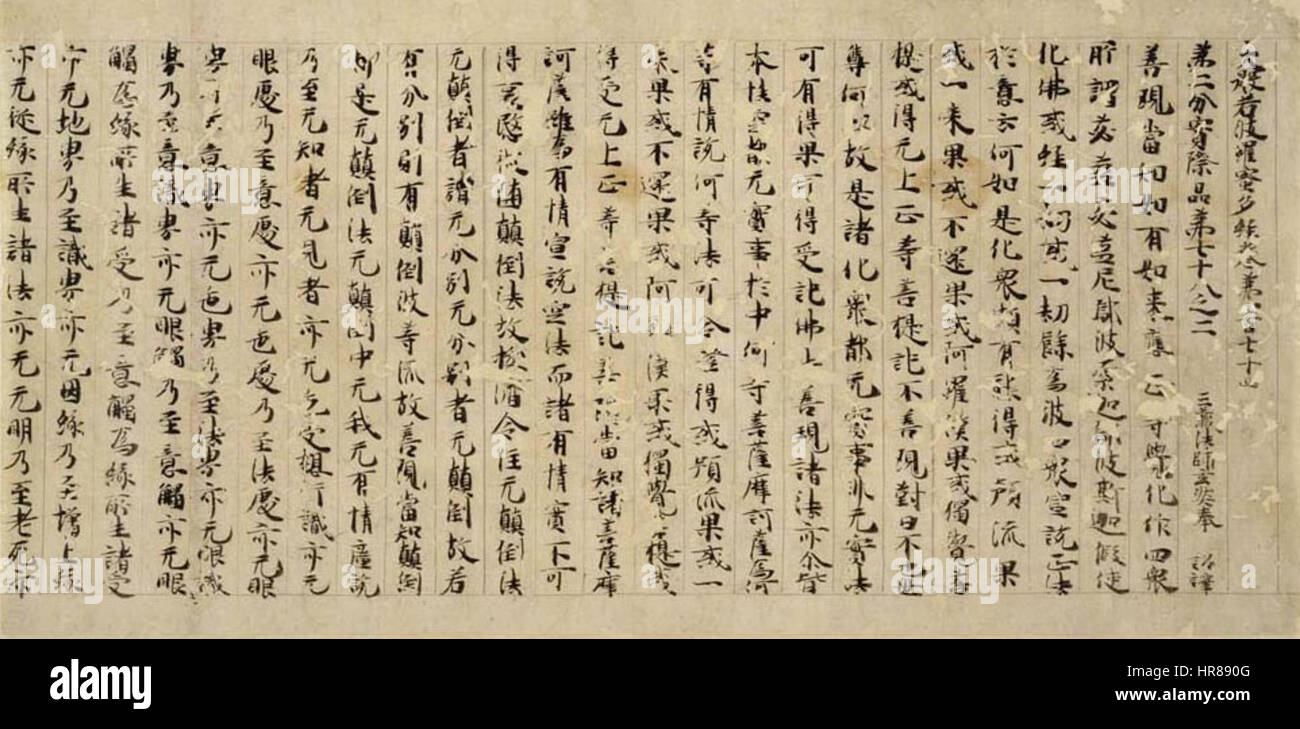 大般若波羅蜜多經卷第四百七十四
第二分實際品第七十八之二 三藏法師玄奘奉 詔譯
善現當知如有如來應正等覺化作四眾
所謂苾芻苾芻尼鄔波索迦鄔波斯迦假使
化佛或經一劫或一劫餘為彼四眾宣說正法
於意云何如是化眾頗有能得或預流果
或一來果或不還果或阿羅漢果或獨覺菩
提或得无上正等菩提記不善現對曰不也世
尊何以故是諸化眾都无實事非无實法
可有得果可得受記佛言善現諸法亦尒皆
本性空都无實事於中何等菩薩摩訶薩為何
等有情說何等法可令證得或預流果或一
來果或不還果或阿羅漢果或獨覺菩提或
得受无上正等菩提記善現當知諸菩薩摩
訶薩雖為有情宣說空法而諸有情實不可
得哀愍彼墮顛倒法故拔濟令住无顛倒法
无顛倒者謂无分別无分別者无顛倒故若
有分別則有顛倒彼等流故善現當知顛倒
即是无顛倒法无顛倒中无我无有情廣說
乃至无知者无見者亦无色受想行識亦无
眼處乃至意處亦无色處乃至法處亦无眼
界乃至意界亦无色界乃至法界亦无眼識
界乃至意識界亦无眼觸乃至意觸亦无眼
觸為緣所生諸受乃至意觸為緣所生諸受
亦无地界乃至識界亦无因緣乃至增上緣
亦无從緣所生諸法亦无无明乃至老死亦
alamy
Image ID: HR890G
www.alamy.com